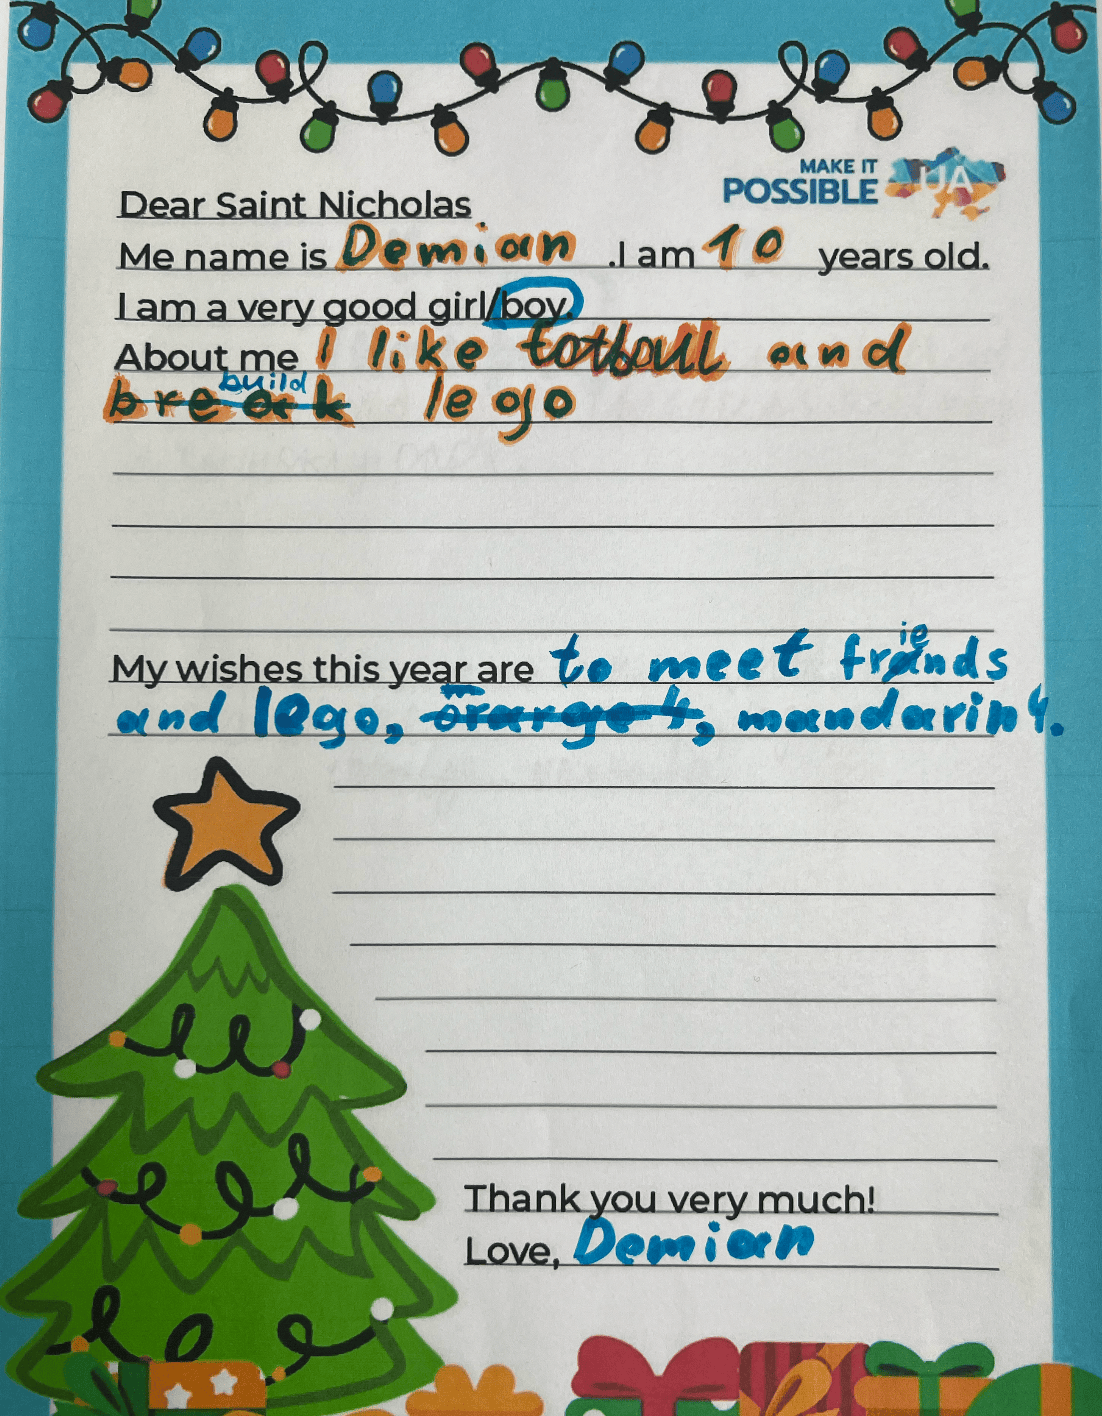 MAKE IT
POSSIBLE UA
Dear Saint Nicholas
Me name is Demian .I am 10 years old.
I am a very good girl/boy.
About me I like fotball and
build
break lego
My wishes this year are to meet friends
and lego, oranges, mandarins.
Thank you very much!
Love, Demian